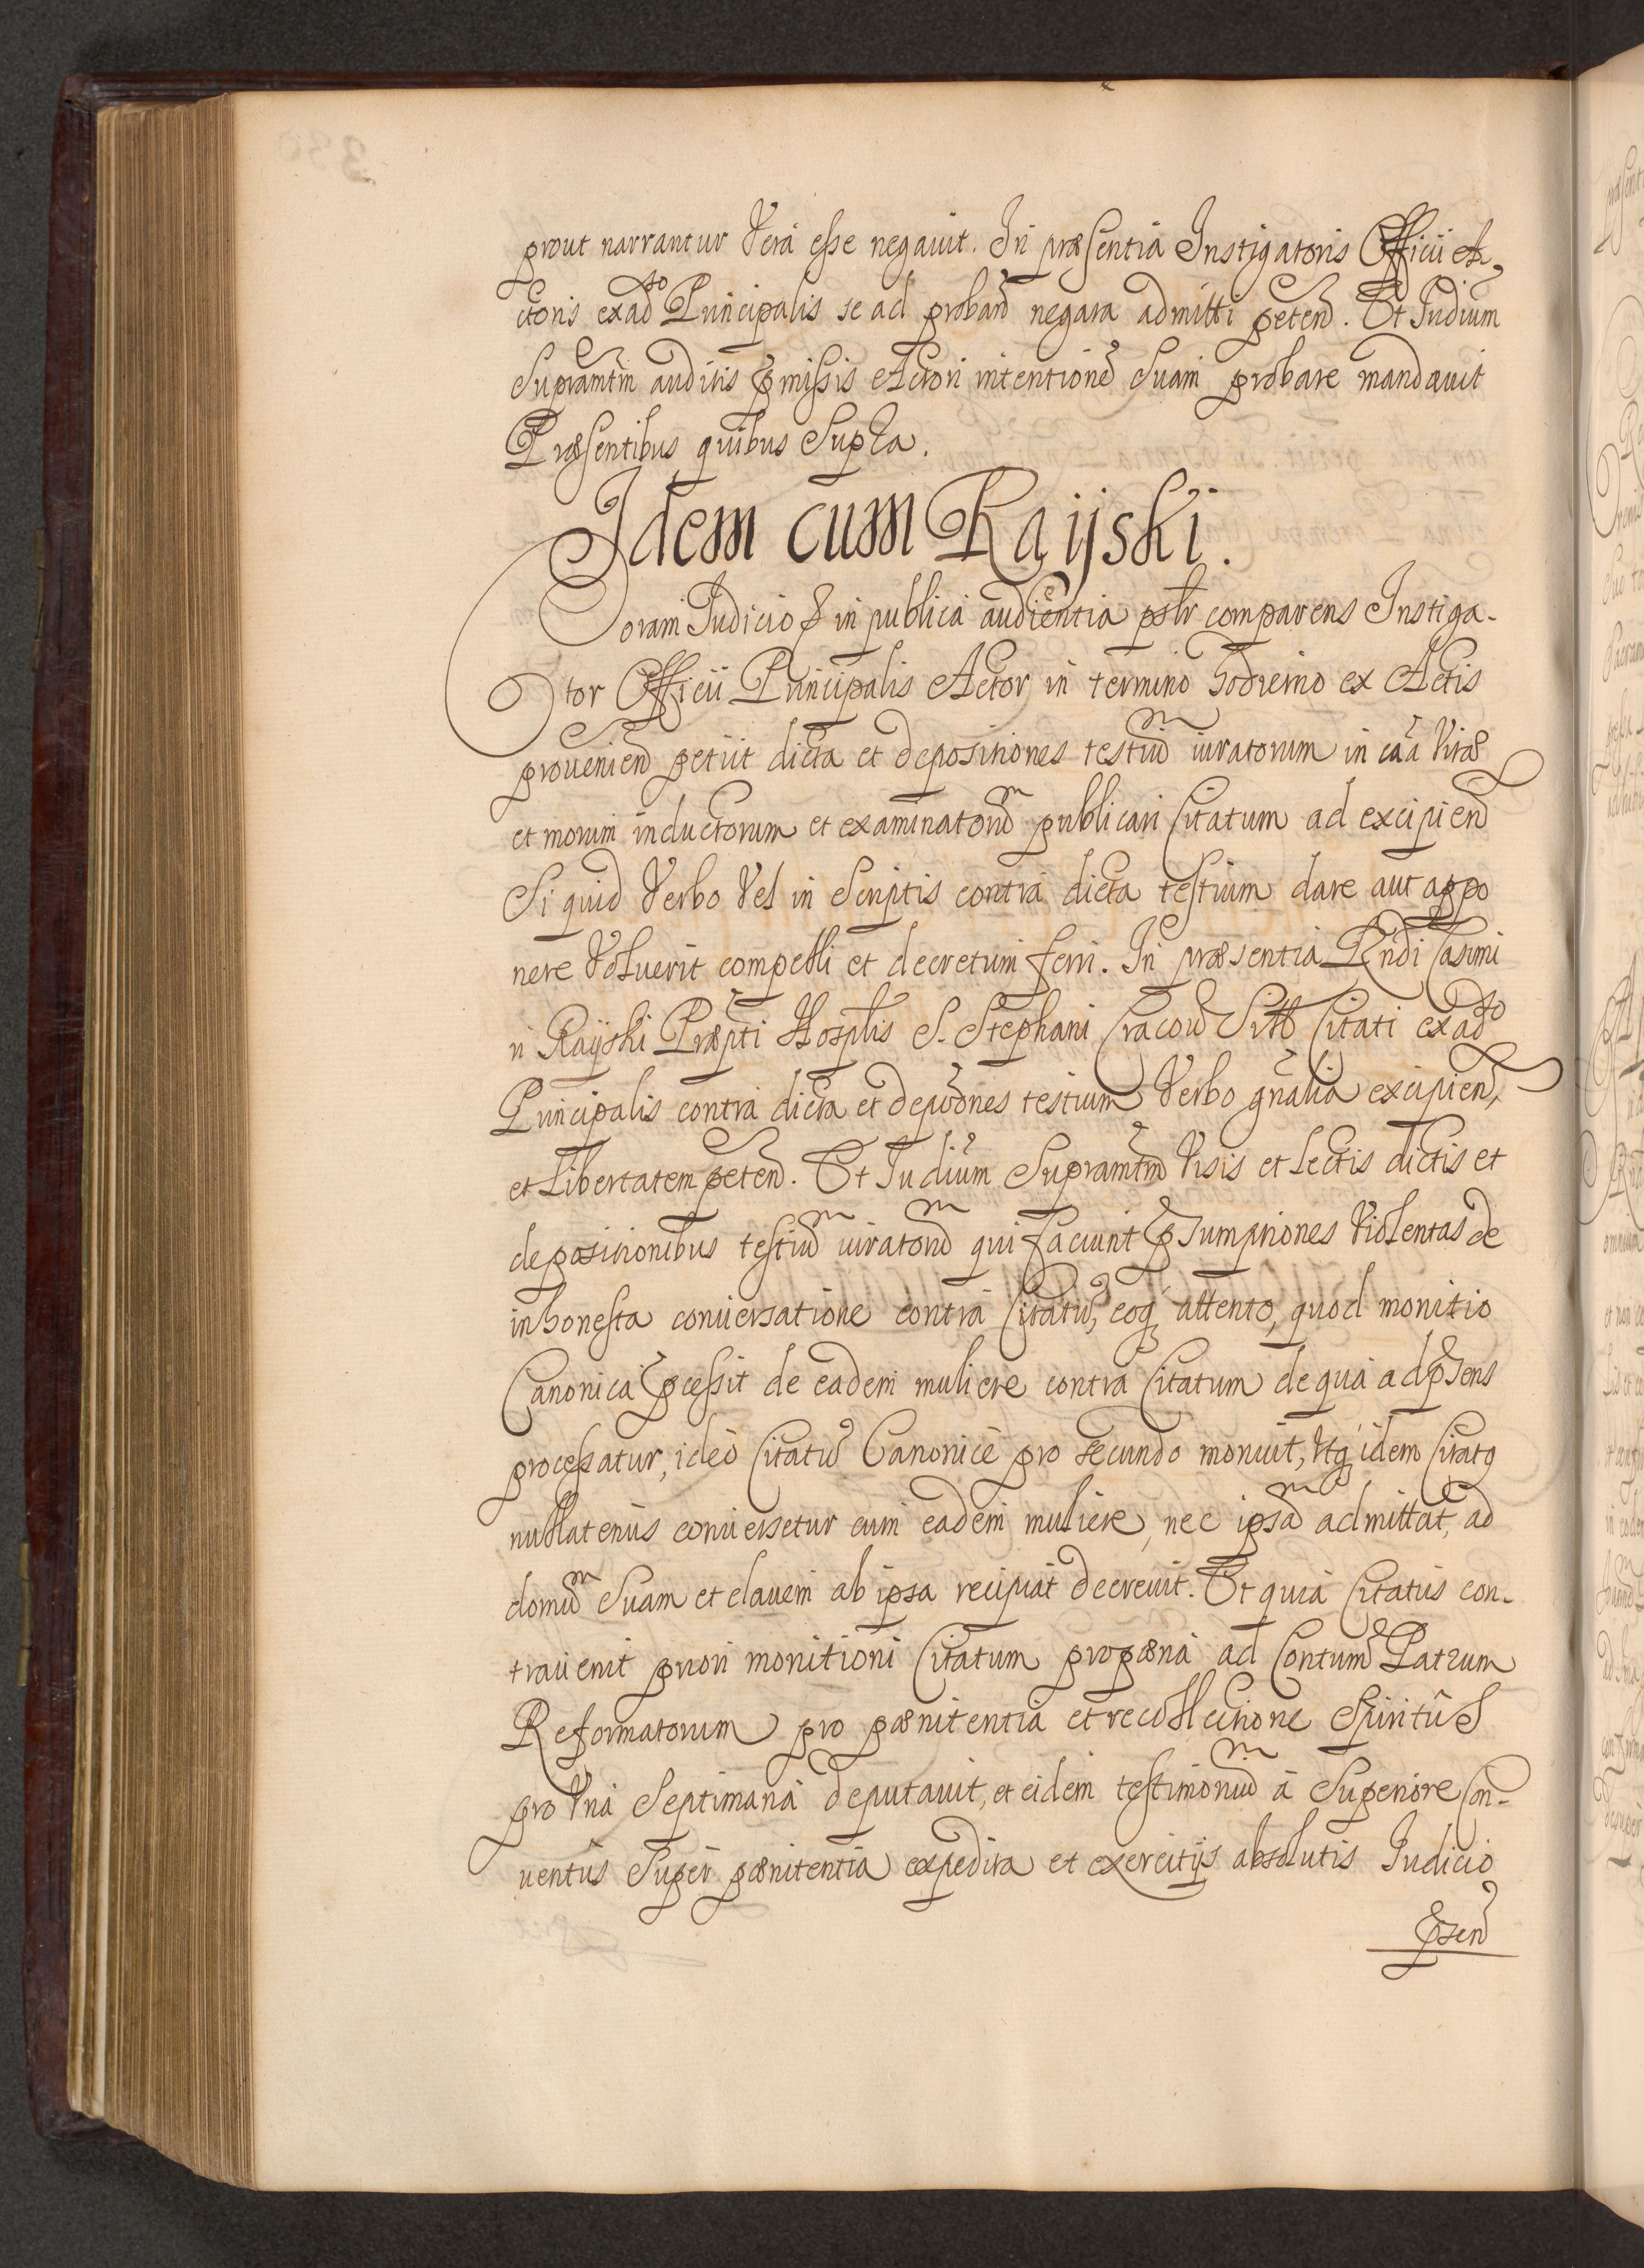 prout narrantur Vera esse negavit. In præsentia Instigatoris Officii A-
ctoris ex adso Principalis se ad proband negata admitti peten̄d. Et Judium
Supramtm auditis pmissis Actori intentionē Suam probare mandavit
Præsentibus quibus Supra.
Idem cum Raijski.
Coram Judicio & in publica audientia pslr comparens Instiga-
tor Officii Principalis Actor in termino hodierno ex Actis
provenien̄d petiit dicta et depositiones testiū iuratorum in caā Vitæ
et morum inductorum et examinatorū publicari Citatum ad excipien̄d
Si quid Verbo Vel in Scriptis contra dicta testium dare aut appo
nere Voluerit compelli et decretum ferri. In præsentia Rndi Casimi
ri Raijski Præpti Hosplis S. Stephani Cracov Citati ex adso
Principalis contra dicta et depōnes testium Verbo gnalia excipien,
et Libertatem peten̄d. Et Judium Supramtm Visis et lectis dictis et
depositionibus testiū iuratorū qui faciunt psumptiones Violentas de
inhonesta conversatione contra Citatū, eoq attento, quod monitio
Canonica pcessit de eadem muliere contra Citatum de qua ad psens
processatur, ideo Citatū Canonicè pro secundo monuit, Vtq idem Citatq
nullatenus conversetur cum eadem muliere, nec ipsā admittat, ad
domū Suam et clavem ab ipsa recipiat decrevit. Et quia Citatus con-
travenit priori monitioni Citatum pro pæna ad Contum Patrum
Reformatorum pro pænitentia et recollectione Spiritûs
pro Vna Septimana deputavit, et eidem testimoniū à Superiore Con-
ventus Super pænitentia expedita et exercitijs absolutis Judicio
psen̄d